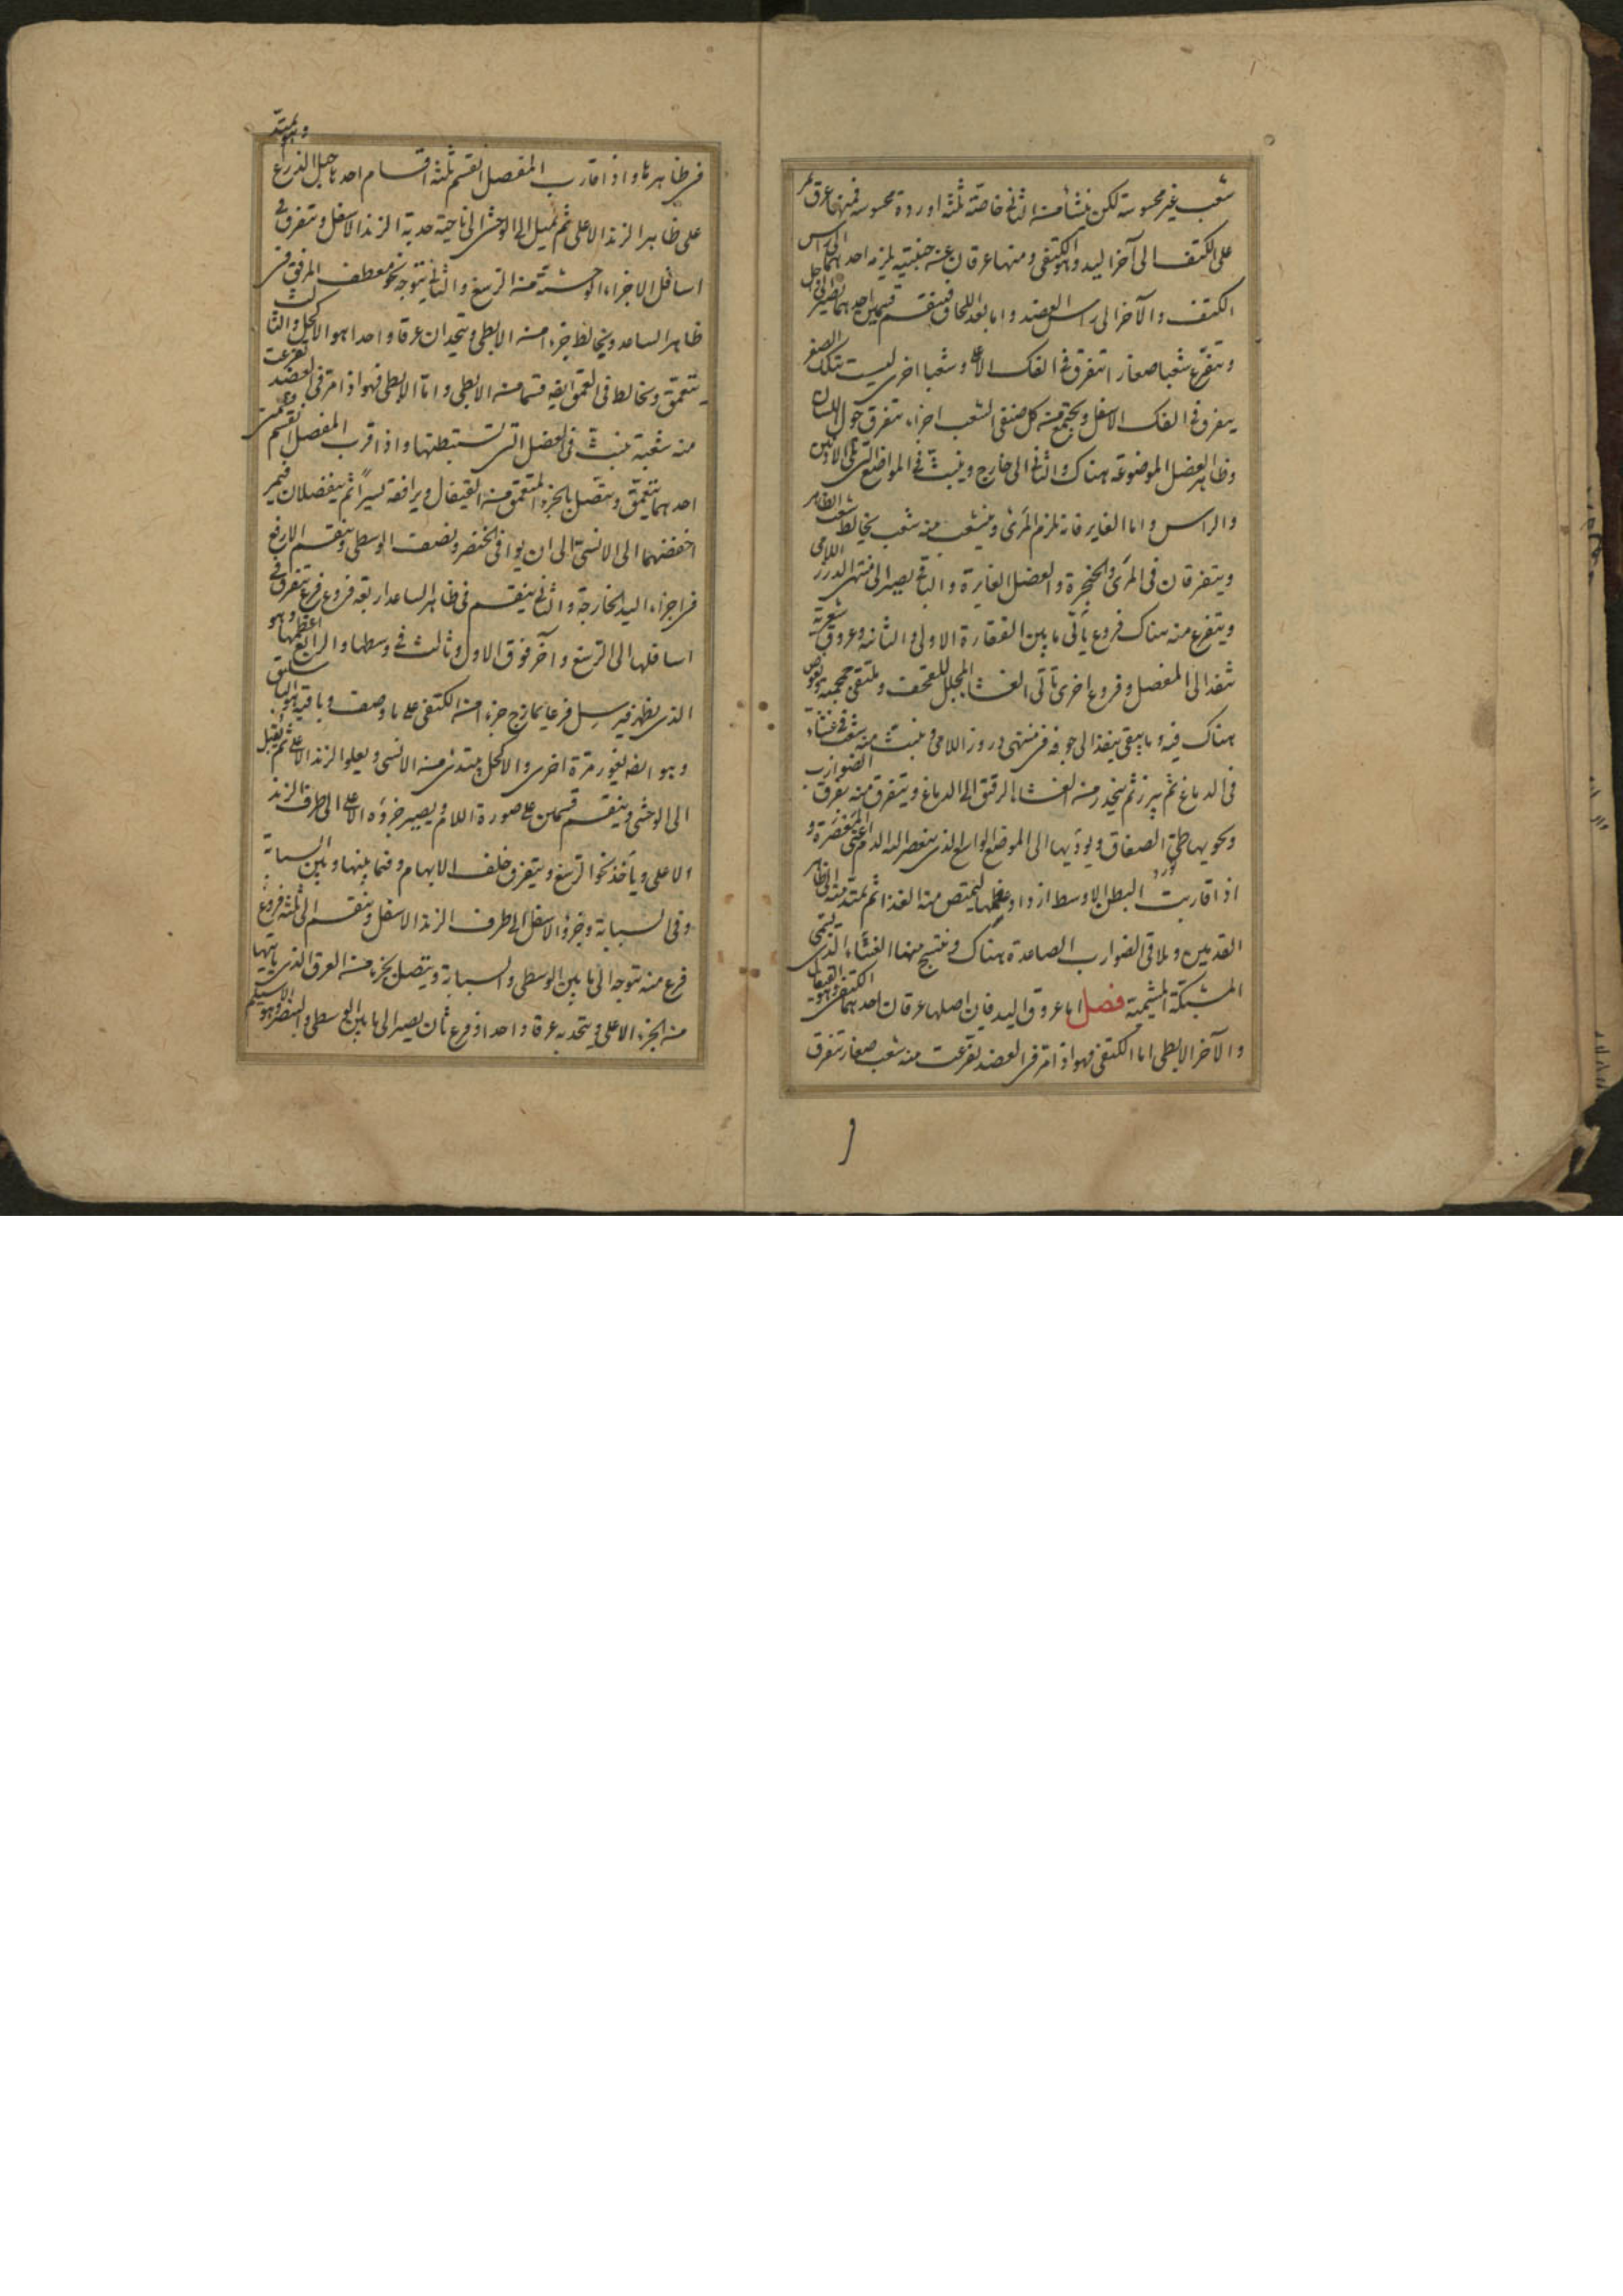 شعب غير محسوسة لكن ينشأ منه الثاني خاصّة ثلثة اوردة محسوسة فمنها عرق يمر
على الكتف الى آخر اليد وهو الكتفى ومنها عرقان عن جنبتيه يلزمه احدهما الى راس
الكتف والآخر الى راس العضد واما بعد اللحاق فينقسم قسمين احدهما يصير الى داخل
ويتفرع شعبا صغارا تتفرق في الفك الاعلى وشعبا اخرى ليست بتلك الصغر
يتفرق في الفك الاسفل ويجتمع من كل صنفى الشعب اجزاء تتفرق حول اللسان
وظاهر العضل الموضوعة هناك والثاني الى خارج وينبث في المواضع التي تلي الاذنين
والراس واما الغاير فانه يلزم المرئ ويتشعب منه شعب يخالط شعب الظاهر
ويتفرقان في المرئ والحنجرة والعضل الغايرة والباقي يصير الى منتهى الدرز اللامى
ويتفرع منه هناك فروع يأتي ما بين الفقارة الاولى والثانية وعروق شعرية
تنفذ الى المفصل وفروع اخرى تأتى الغشاء المجلل للقحف وملتقى جمجمتيه ويغوص
هناك فيه وما يبقى ينفذ الى جوفه في منتهى دروز اللامى وينبث منه شعب في غشاء
في الدماغ ثم يبرز ثم ينحدر من الغشاء الرقيق الى الدماغ ويتفرق منه تفرق الضوارب
ويحويها طى الصفاق ويؤديها الى الموضع الواسع الذى ينعصر اليه الدم اعنى المعصرة و
اذا قاربت البطن الاوسط ازداد عظمها ليمتص منه الغذاء ثم يمتد منه الى ظاهر
القدمين ويلاقى الضوارب الصاعدة هناك وينتسج منها الغشاء الذى يسمى
المشبكة المشيمية فصل اما عروق اليد فان اصلها عرقان احدهما الكتفى وهو القيفال
والآخر الابطى اما الكتفى فهو اذا مر في العضد تفرعت منه شعب صغار تتفرق
في ظاهرها واذا قارب المفصل انقسم ثلثة اقسام احدها حبل الذراع وهو يمتد
على ظاهر الزند الاعلى ثم يميل الى الوحشى الى ناحية حدبة الزند الاسفل ويتفرق في
اسافل الاجزاء الوحشية من الرسغ والثاني يتوجه نحو معطف المرفق في
ظاهر الساعد ويخالط جزءا من الابطى ويتحدان عرقا واحدا هو الاكحل والثالث
يتعمق ويخالط في العمق ايضه قسما من الابطى واما الابطى فهو اذا مر في العضد تفرعت
منه شعبة تنبث في العضل التي تستبطنها واذا قرب المفصل انقسم قسمين
احدهما يتعمق ويتصل بالجزء المتعمق من القيفال ويرافقه يسيرا ثم ينفصلان فيمر
اخفضهما الى الانسى الى ان يوافى الخنصر ونصف الوسطى وينقسم الارفع
في اجزاء اليد الخارجة والثاني ينقسم في ظاهر الساعد اربعة فروع فرع يتفرق في
اسافلها الى الرسغ وآخر فوق الاول وثالث في وسطها والرابع اعظمها وهو
الذى يظهر فيرسل فرعا يمازج جزءا من الكتفى على ما وصف وباقيه الباسليق
وهو ايضه يغور مرة اخرى والاكحل يبتدئ من الانسى ويعلو الزند الاعلى ثم يقبل
الى الوحشى وينقسم قسمين على صورة اللام ويصير جزؤه الاعلى الى طرف الزند
الاعلى ويأخذ نحو الرسغ ويتفرق خلف الابهام وفيما بينها وبين السبابة
وفي السبابة وجزؤه الاسفل الى طرف الزند الاسفل وينقسم الى ثلثة فروع
فرع منه يتوجه الى ما بين الوسطى والسبابة ويتصل بجزء من العرق الذى يأتيها
من الجزء الاعلى ويتحد به عرقا واحدا وفرع ثان يصير الى ما بين الوسطى والبنصر وهو الاسيلم